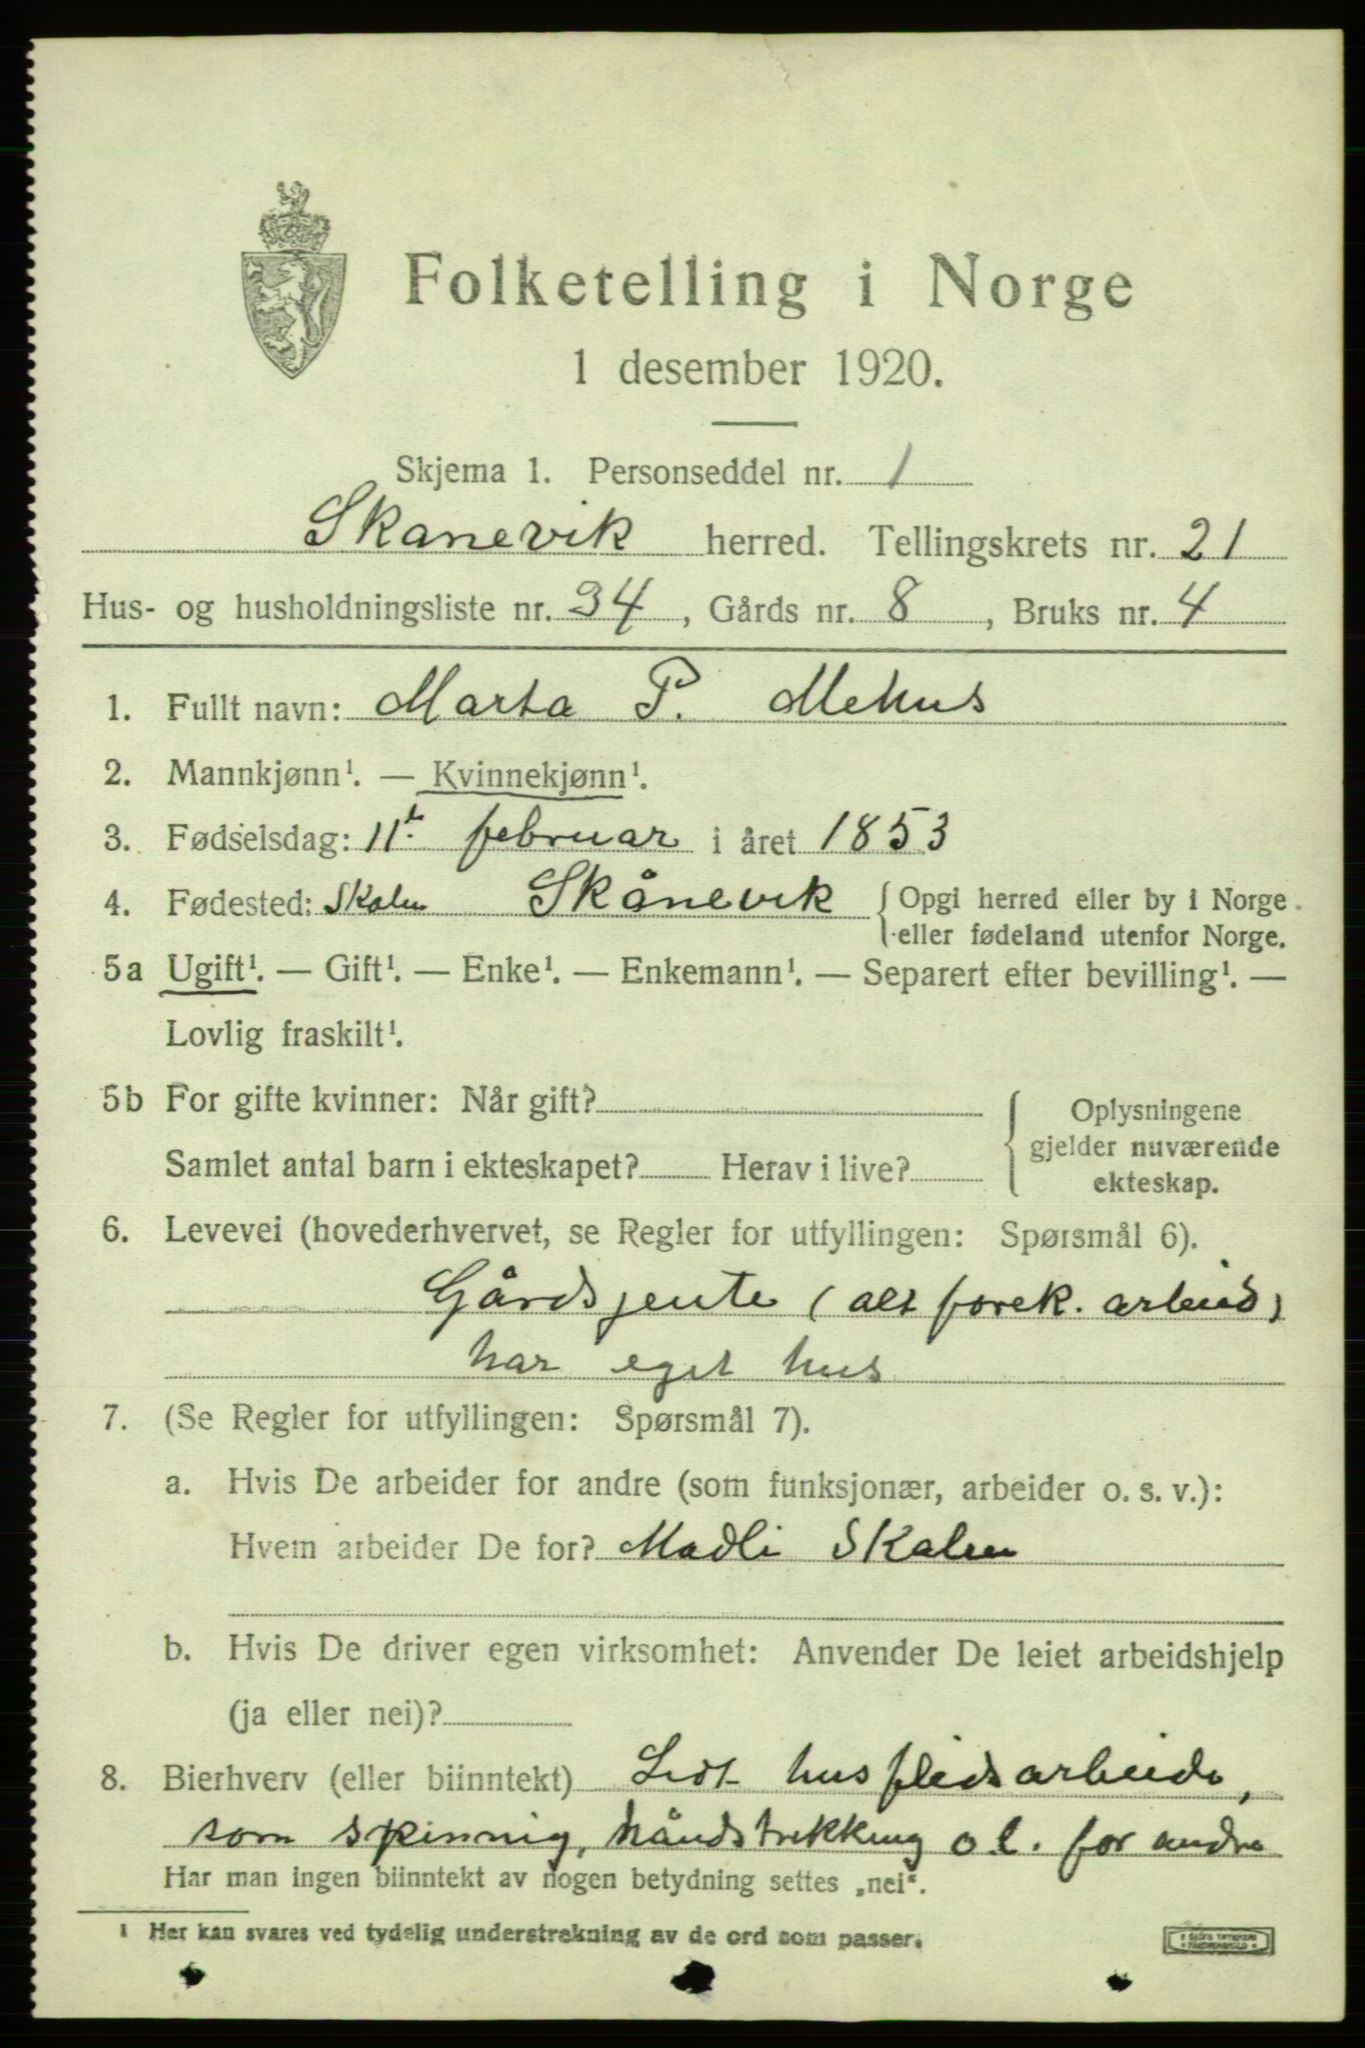 Folketelling i Norge
1 desember 1920.
Skjema 1. Personseddel nr. 1
Skanevik herred. Tellingskrets nr. 21
Hus- og husholdningsliste nr. 34, Gårds nr. 8, Bruks nr. 4
1. Fullt navn: Marta P. Mehus
2. Mannkjønn¹. — Kvinnekjønn¹.
3. Fødselsdag: 11t. februar i året 1853
4. Fødested: Skålen Skånevik { Opgi herred eller by i Norge
eller fødeland utenfor Norge.
5a Ugift¹. — Gift¹. — Enke¹. — Enkemann¹. — Separert efter bevilling¹. —
Lovlig fraskilt¹.
5b For gifte kvinner: Når gift? { Oplysningene
gjelder nuværende
ekteskap.
Samlet antal barn i ekteskapet? Herav i live?
6. Levevei (hovederhvervet, se Regler for utfyllingen: Spørsmål 6).
Gårdsjente (alt forek. arbeid)
har eget hus
7. (Se Regler for utfyllingen: Spørsmål 7).
a. Hvis De arbeider for andre (som funksjonær, arbeider o. s. v.):
Hvem arbeider De for? Madli Skalen
b. Hvis De driver egen virksomhet: Anvender De leiet arbeidshjelp
(ja eller nei)?
8. Bierhverv (eller biinntekt) Lidt husflidsarbeide,
som spinnig, håndstrekking o.l. for andre
Har man ingen biinntekt av nogen betydning settes „nei“.
1 Her kan svares ved tydelig understrekning av de ord som passer.